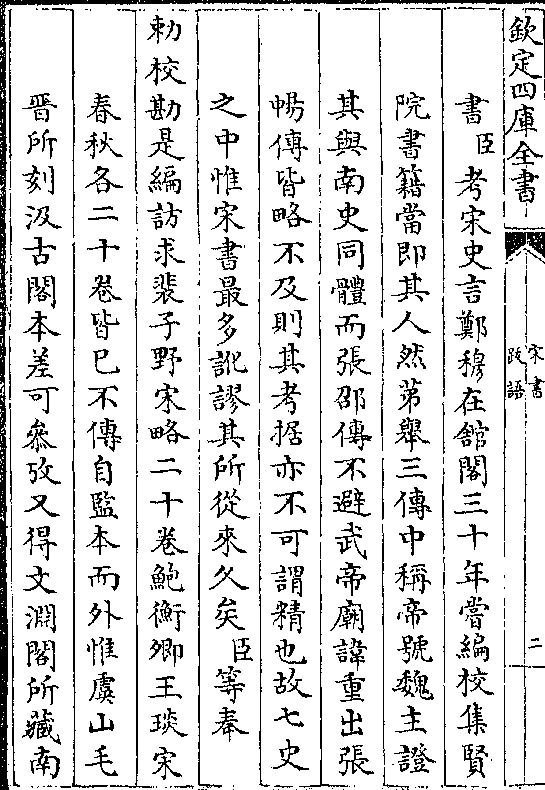 欽定四庫全書
宋書
跋語
二
書臣考宋史言鄭穆在舘閣三十年嘗編校集賢
院書籍當即其人然第舉三傳中稱帝號魏主證
其與南史同體而張邵傳不避武帝廟諱重出張
暢傳皆略不及則其考据亦不可謂精也故七史
之中惟宋書最多訛謬其所從來久矣臣等奉
勅校勘是編訪求裴子野宋略二十卷鮑衡卿王琰宋
春秋各二十卷皆已不傳自監本而外惟虞山毛
晉所刻汲古閣本差可叅攷又得文淵閣所藏南